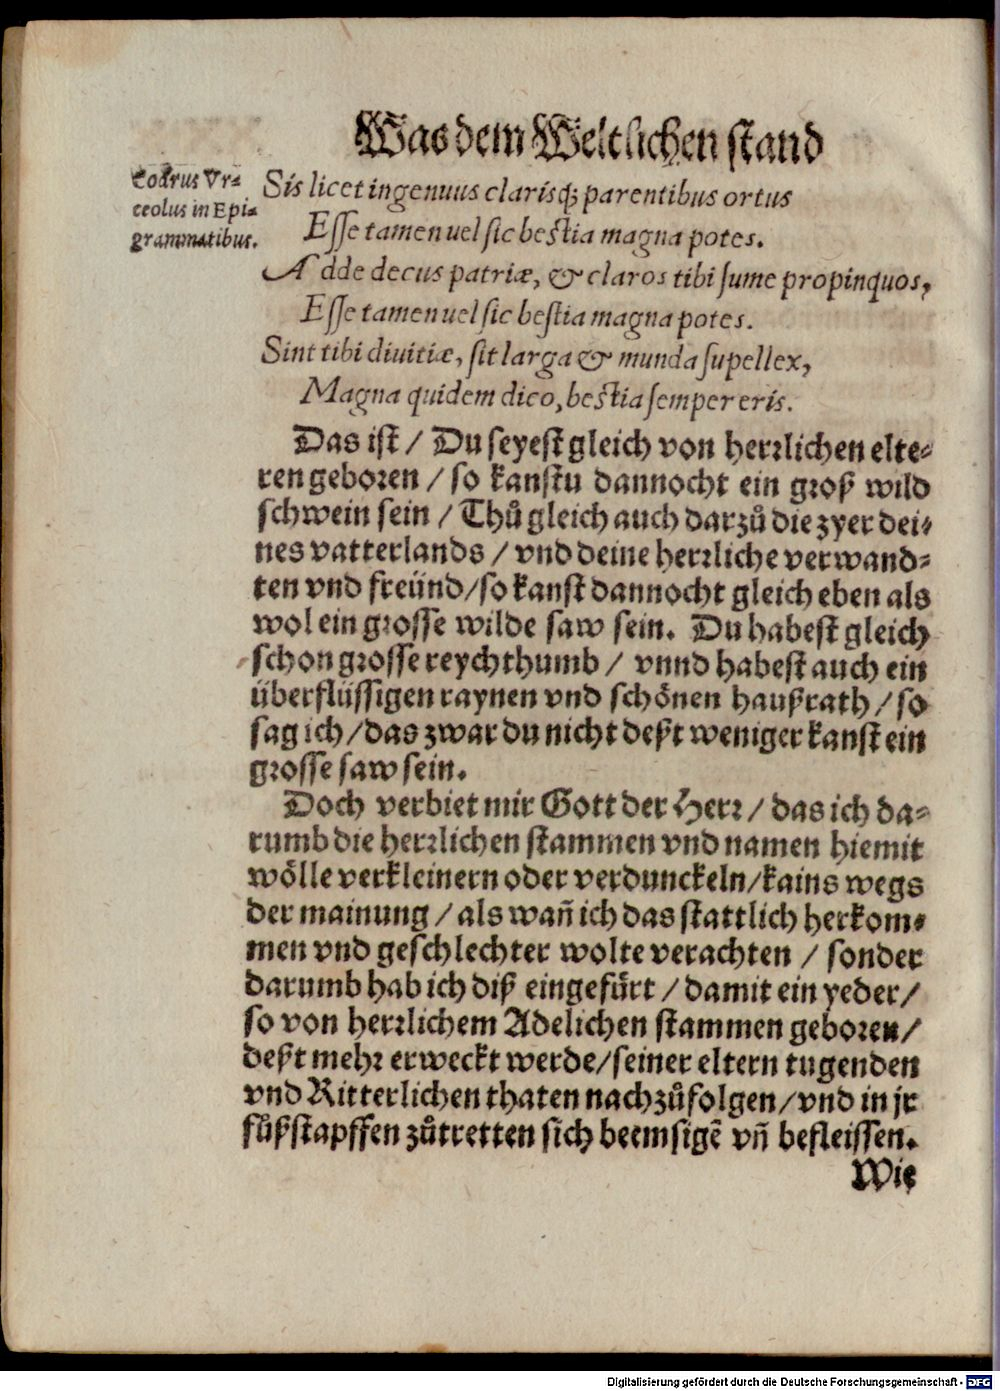 Was dem Weltlichen stand
Codrus Vr⸗
ceolus in Epi⸗
grammatibus.
Sis licet ingenuus clarisq́; parentibus ortus
Esse tamen uel sic bestia magna potes.
Adde decus patriæ, & claros tibi sume propinquos,
Esse tamen uel sic bestia magna potes.
Sint tibi diuitiæ, sit larga & munda supellex,
Magna quidem dico, bestia semper eris.
Das ist / Du seyest gleich von herrlichen elte⸗
ren geboren / so kanstu dannocht ein groß wild
schwein sein / Thů gleich auch darzů die zyer dei⸗
nes vatterlands / vnd deine herrliche verwand⸗
ten vnd freünd / so kanst dannocht gleich eben als
wol ein grosse wilde saw sein. Du habest gleich
schon grosse reychthumb / vnnd habest auch ein
überflüssigen raynen vnd schönen haußrath / so
sag ich / das zwar du nicht deßt weniger kanst ein
grosse saw sein.
Doch verbiet mir Gott der Herr / das ich da⸗
rumb die herrlichen stammen vnd namen hiemit
wölle verkleinern oder verdunckeln / kains wegs
der mainung / als wañ ich das stattlich herkom⸗
men vnd geschlechter wolte verachten / sonder
darumb hab ich diß eingefürt / damit ein yeder /
so von herrlichem Adelichen stammen geboren /
deßt mehr erweckt werde / seiner eltern tugenden
vnd Ritterlichen thaten nachzůfolgen / vnd in jr
fůßstapffen zůtretten sich beemsigẽ vñ befleissen.
Wie
Digitalisierung gefördert durch die Deutsche Forschungsgemeinschaft - DFG